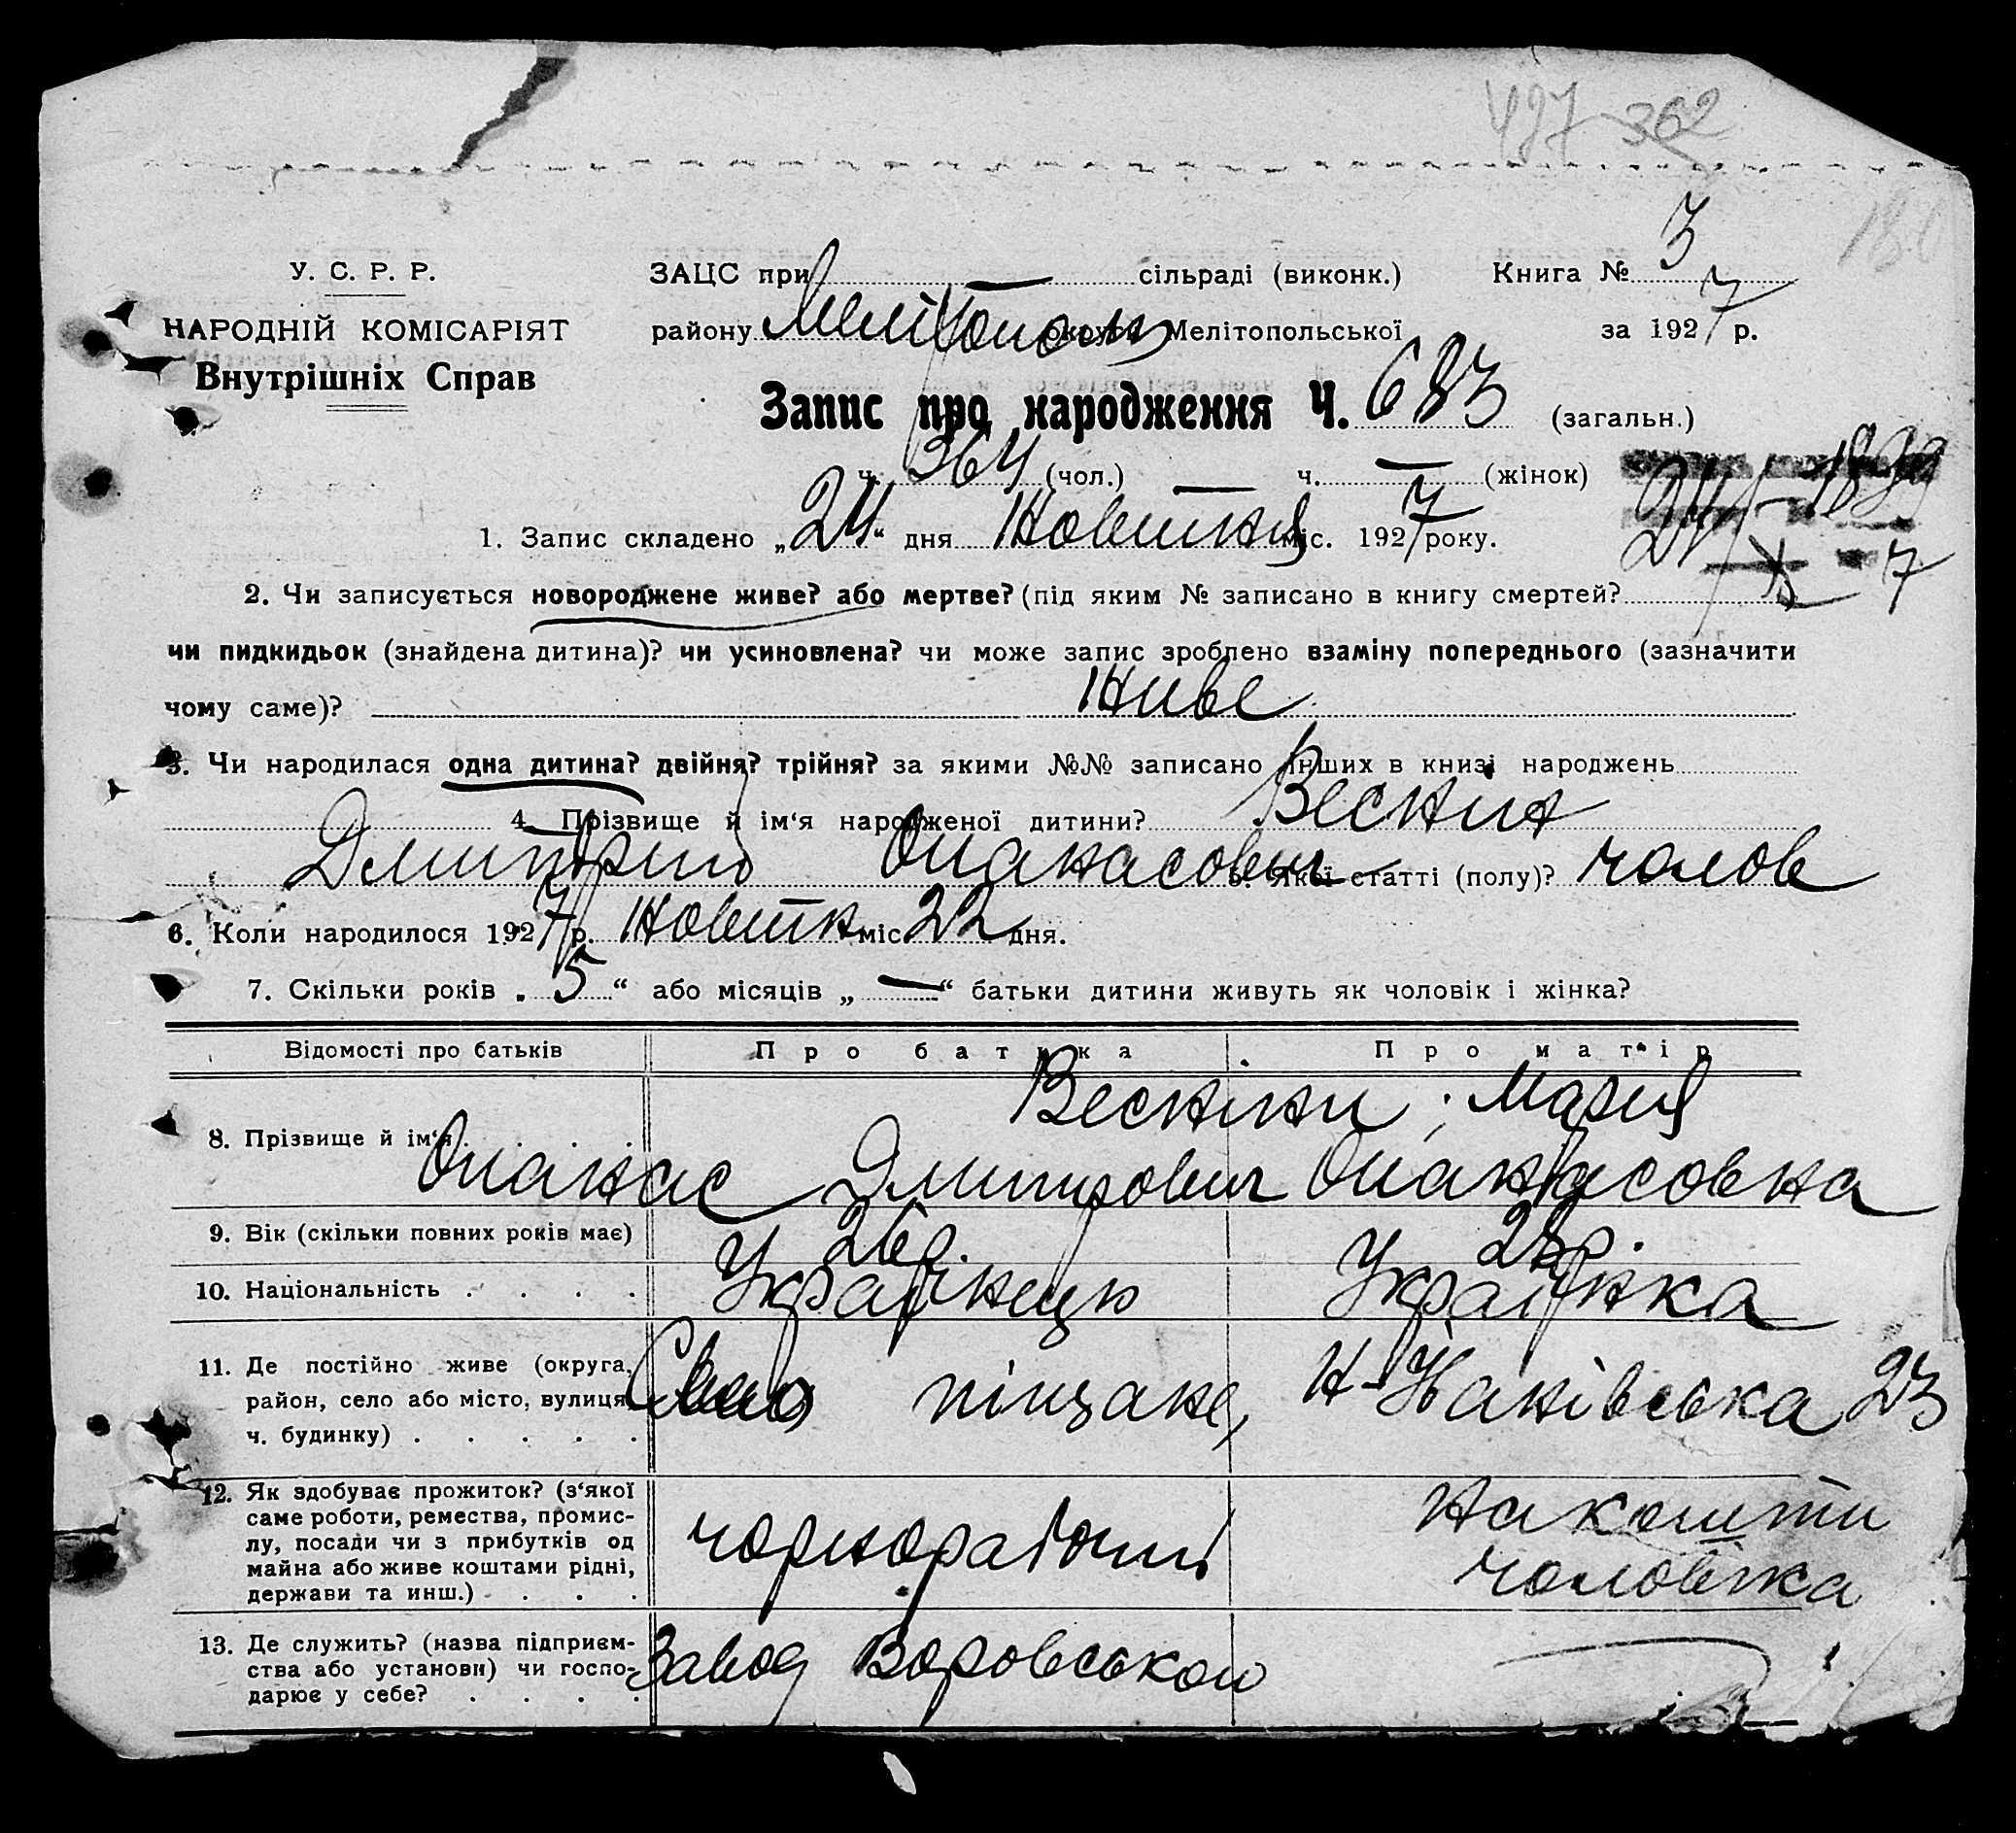 427 362
У. С. Р. Р.
НАРОДНІЙ КОМІСАРІЯТ
Внутрішніх Справ
ЗАЦС при — сільраді (виконк.) Книга № 3
району Мелітополь округи Мелітопольської за 1927 р.
Запис про народження Ч. 683 (загальн.)
ч. 364 (чол.) ч. — (жінок)
1. Запис складено „24“ дня Новітня міс. 1927 року.
2. Чи записується новороджене живе? або мертве? (під яким № записано в книгу смертей?
чи пидкидьок (знайдена дитина)? чи усиновлена? чи може запис зроблено взаміну попереднього (зазначити
чому саме)? Живе
3. Чи народилася одна дитина? двійня? трійня? за якими №№ записано інших в книзі народжень
4. Прізвище й ім‘я народженої дитини? Веснин
Дмитрий Опанасович 5. Якої статті (полу)? чолов
6. Коли народилося 1927 р. Новітн міс 22 дня.
7. Скільки років „5“ або місяців „—“ батьки дитини живуть як чоловік і жінка?
Відомості про батьків Про батька Про матір
8. Прізвище й ім‘я Весніни Мария
Опанас Дмитрович Опанасовна
9. Вік (скільки повних років має) 26р. 28р.
10. Національність Українець Українка
11. Де постійно живе (округа, район, село або місто, вулиця ч. будинку) Село піщане, 23
12. Як здобуває прожиток? (з‘якої
саме роботи, ремества, промис-
лу, посади чи з прибутків од
майна або живе коштами рідні,
держави та инш.) чорноробочий на кошти
чоловіка
13. Де служить? (назва підприєм-
ства або установи) чи госпо-
дарює у себе? Завод Воровського